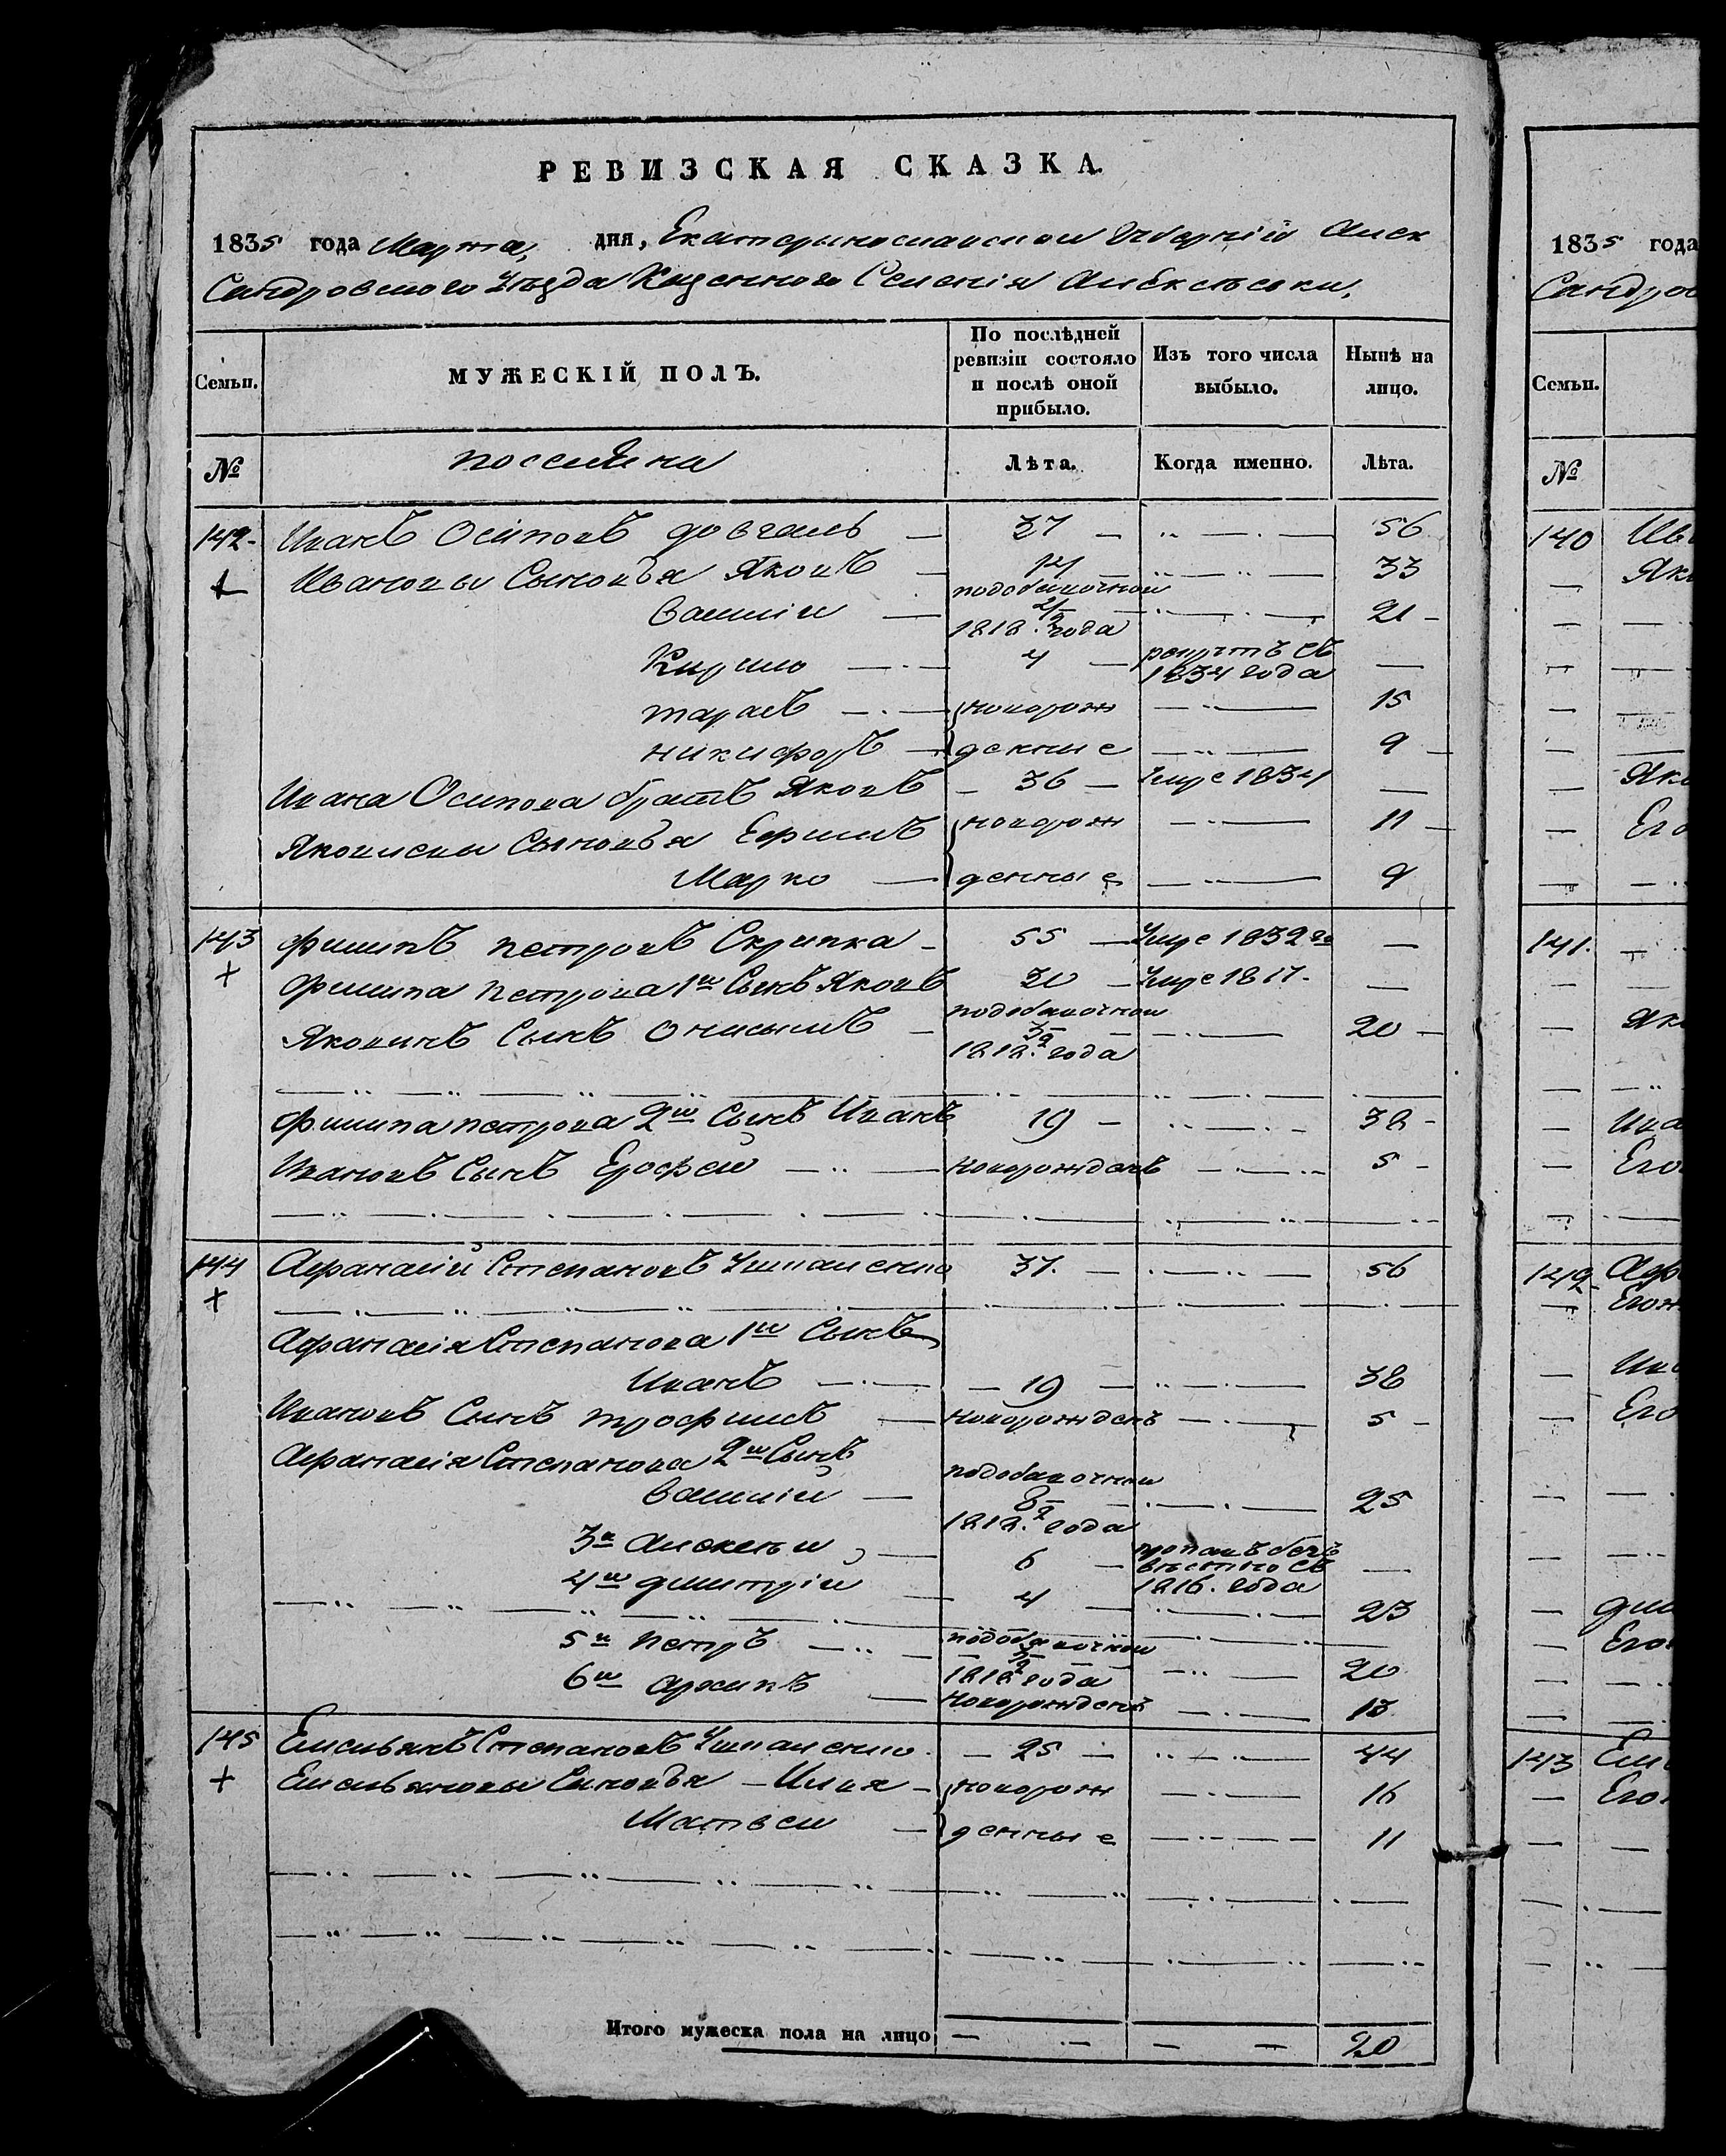 РЕВИЗСКАЯ СКАЗКА.
1835 года Марта, дня, Екатеринославской Губерніи Алек
Сандровского Уѣзда Казенного Селенія
Семьи. МУЖЕСКІЙ ПОЛЪ. По послѣдней ревизіи состояло и послѣ оной прибыло. Изъ того числа выбыло. Нынѣ на лицо.
№ Лѣта. Когда именно. Лѣта.
142 Иванъ Осиповъ Довгаль 37 56
Ивановы Сыновья Яковъ 14 33
Василій 1818 года 21
Кирило 4 рекрутъ съ 1834 года
Тарасъ новорож 15
Никифоръ денные 9
Ивана Осипова братъ Яковъ 36 умре 1834
Яковлевы Сыновья Ефимъ новорож 11
Марко денные 9
143 Филипъ Петровъ Скрипка 55 умре 1832 го
Филипа Петрова 1й Сынъ Яковъ 20 умре 1817
Яковичъ Сынъ Онисимъ 1818 года 20
Филипа Петрова 2й Сынъ Иванъ 19 38
Ивановъ Сынъ Ерофей новорожденъ 5
144 Афанасій Степановъ 37. 56
Афанасія Степанова 1й Сынъ
Иванъ 19 38
Ивановъ Сынъ Трофимъ новорожденъ 5
Афанасія Степанова 2й Сынъ
Василій 1818. года 25
3й Алексей 6 пропалъ безъ вѣстно съ 1816. года
4й Дмитрій 4 23
5й Петръ 1818 года 20
6й Архипъ новорожденъ 13
145 Емельянъ Степановъ 25 44
Емельяновы Сыновья Илья новорож 16
Матвей денные 11
Итого мужеска пола на лицо 20
1835 года
Сандров
Семьи.
№
140 Ива
Яко
Яко
Его
141.
Яко
Ива
Его
142 Афа
Его
Ива
Его
Дми
Его
143 Еме
Его